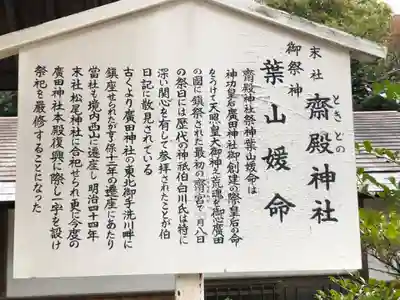 末社 齋殿神社
ときどの
御祭神 葉山媛命
齋殿神社祭神葉山媛命は
神功皇后廣田神社御創建の際皇后の命
をうけて天照皇大御神之荒魂を御心廣田
の國に鎮祭された最初の齋宮で八月八日
の祭日には歴代の神祇伯白川氏は特に
深い関心を有して参拝されたことが伯
日記に散見されている
古くより廣田神社の東北御手洗川畔に
鎮座せられたが享保十二年の遷座にあたり
當社も境内西山に遷座し明治四十四年
末社松尾神社に合祀せられ更に今度の
廣田神社本殿復興に際し一宇を設け
祭祀を厳修することになった